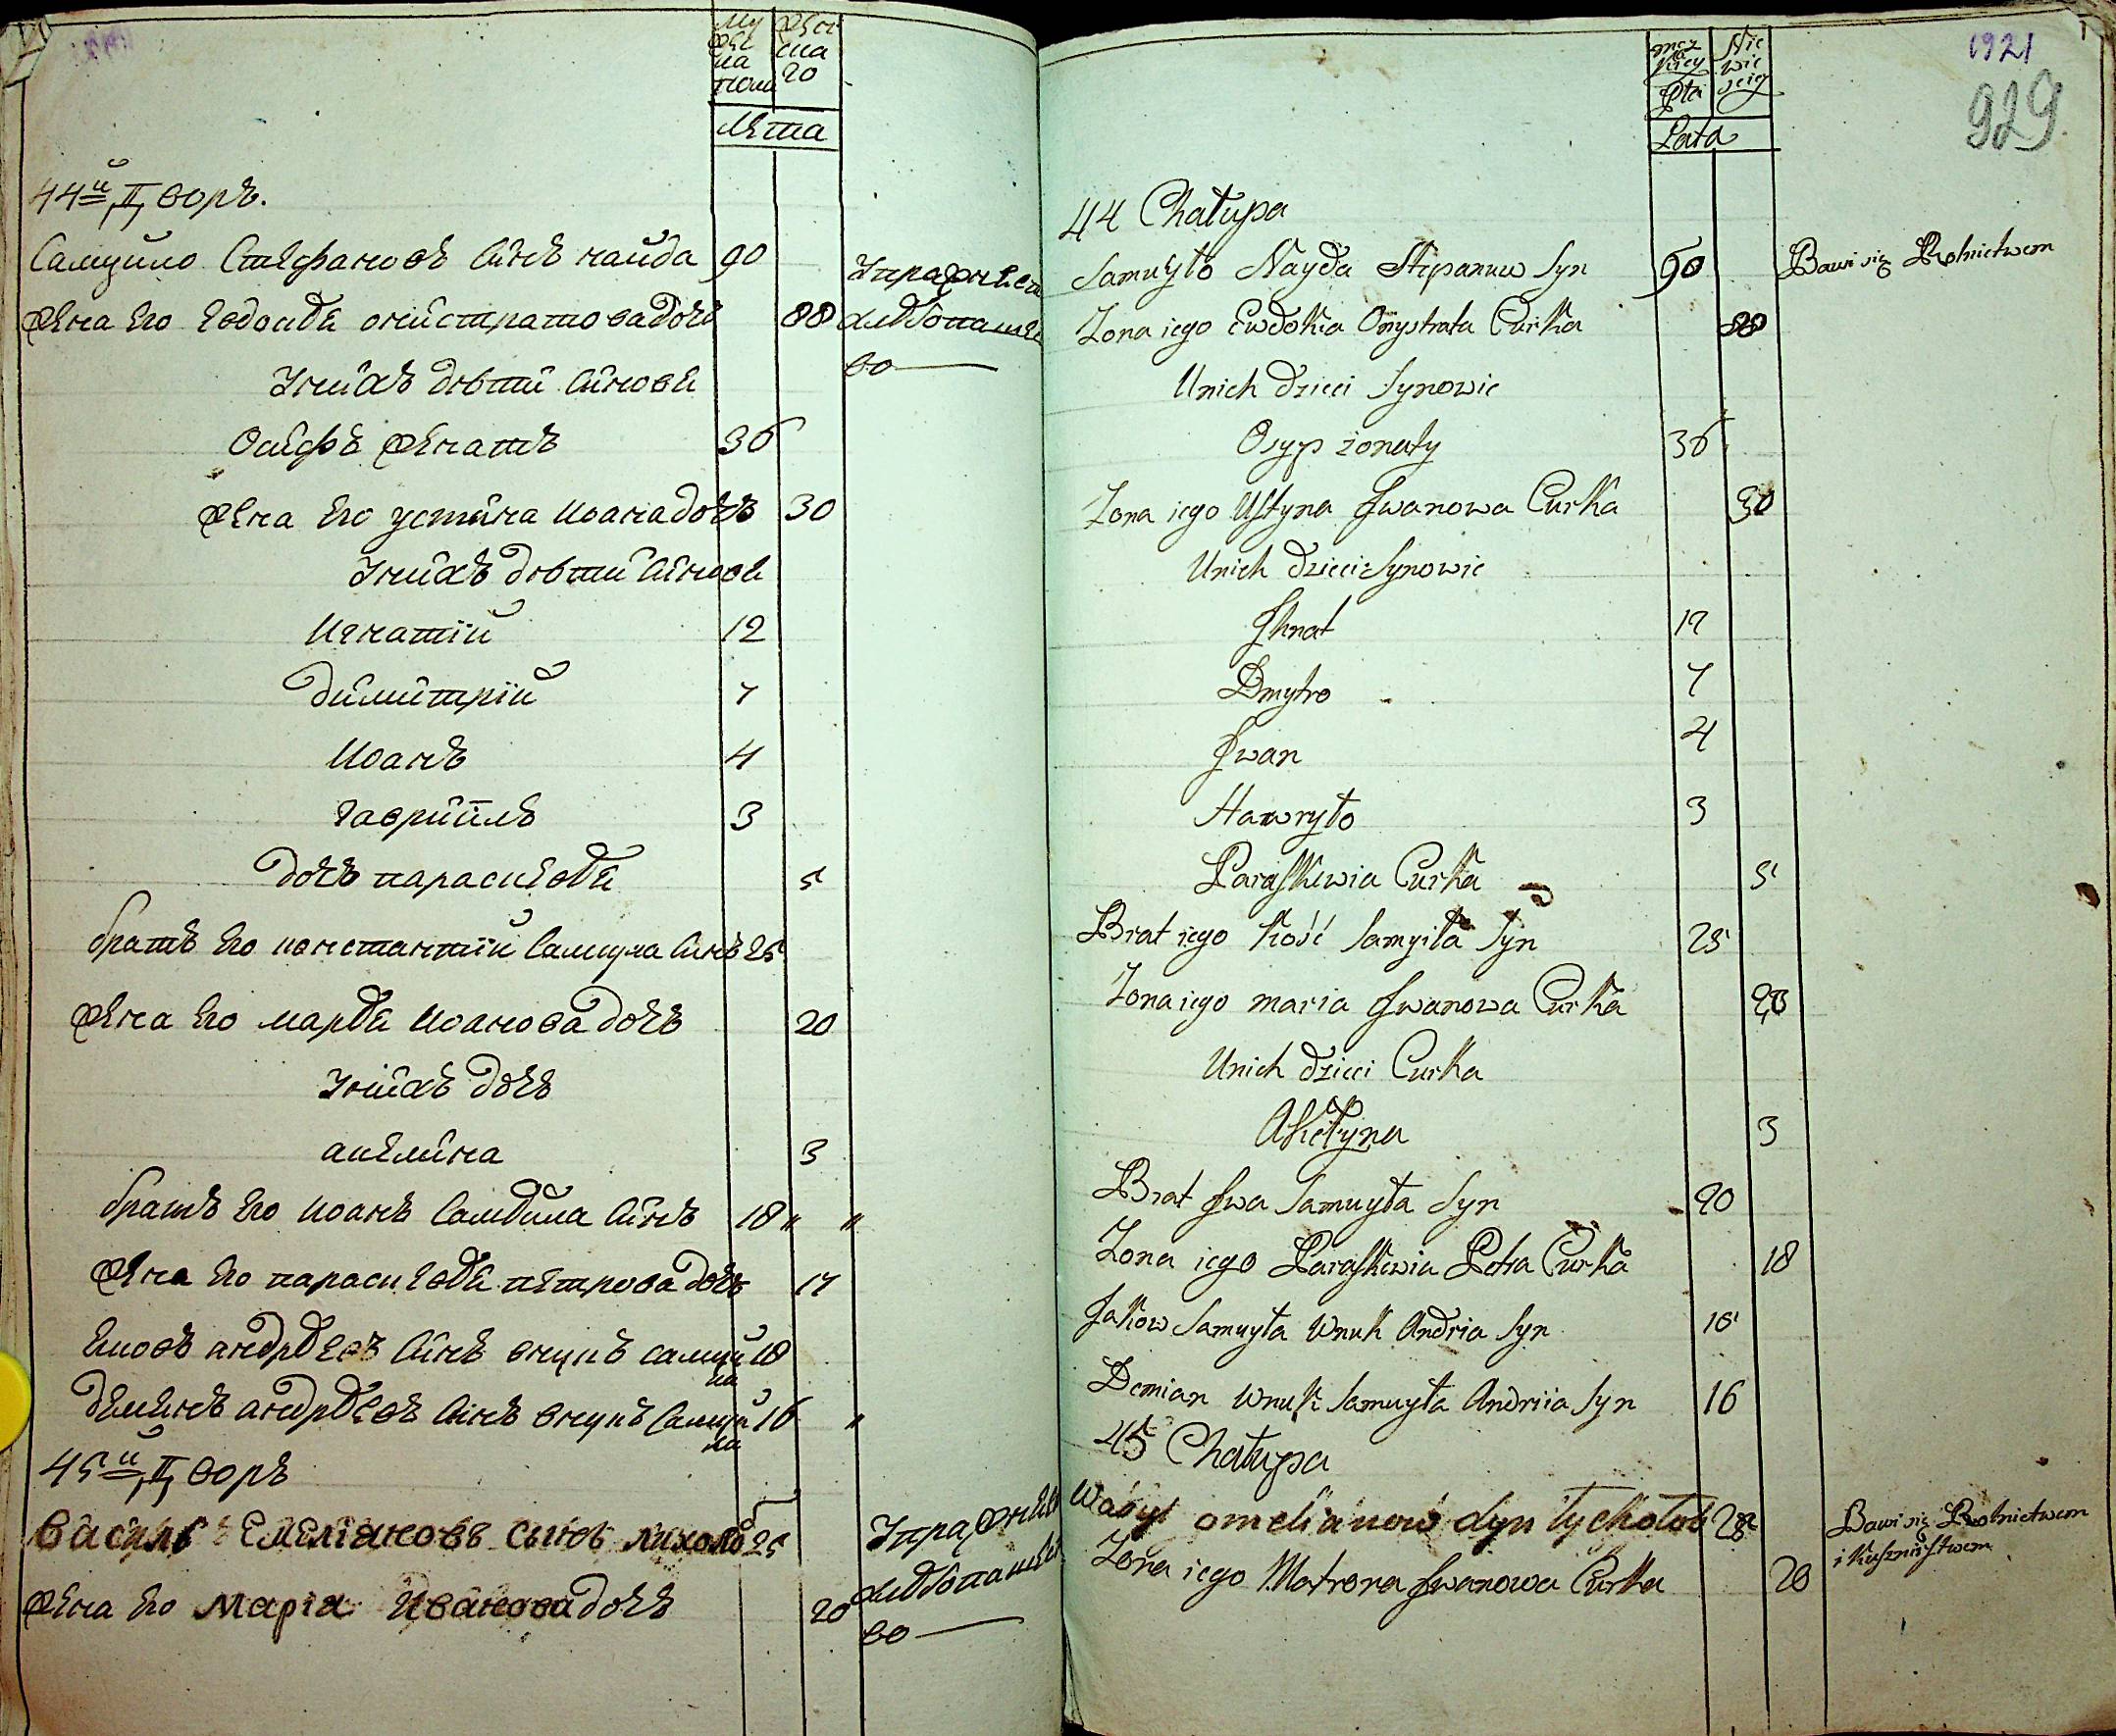 Му
жес
ка
пола
женска
20
Лѣта
44й Дворъ.
Самуило Стефановъ синъ найда 90
Жена его Евдокѣя онистратова дочъ 88
Упражнен
хлѣбопаше
во
Унихъ дѣти синове
Осифъ женатъ 36
Жена его устина иоана дочъ 30
Унихъ дѣти синове
Игнатій 12
Димитрій 7
Иоанъ 4
Гавриилъ 3
дочъ параскевѣя 5
братъ его константій Самуила синъ 25
Жена его марѣя Иоанова дочъ 20
Унихъ дочъ
акелина 3
братъ его иоанъ Самуила синъ 18 " "
Жена его параскевѣя петрова дочъ 17
Яковъ андрѣевъ синъ внукъ самуйла 18
демянъ андрѣевъ синъ внукъ Самуйла 16 "
45й Дворъ
Василь Емеліановъ сынъ лихолоб 25
Жена его Марія Иванова дочъ 20
Упражнен
хлѣбопашес
во
1921
929
męz
kiey
płci
Nie
wie
sciey
Lata
44 Chałupa
Samuyło Nayda Stepanuw Syn 90 Bawi się Rolnictwem
Zona iego Ewdokia Onystrata Curka 88
Unich dzieci Synowie
Osyp żonaty 36
Zona iego Ustyna Iwanowa Curka 30
Unich dzieci Synowie
Ihnat 12
Dmytro 7
Iwan 4
Hawryło 3
Paraskiewia Curka 5
Brat iego Kość Samyiła Syn 25
Zona iego maria Iwanowa Curka 20
Unich dzieci Curka
Akełyna 3
Brat Iwa Samuyła Syn 20
Zona iego Paraskiewia Petra Curka 18
Jakow Samuyła Wnuk Andria Syn 18
Demian Wnuk Samuyła Andriia Syn 16
45 Chałupa
Wasyl omelianow syn łychołob 28 Bawi się Rolnictwem
i Kusznistwem
Zona iego Matrona Iwanowa Curka 20